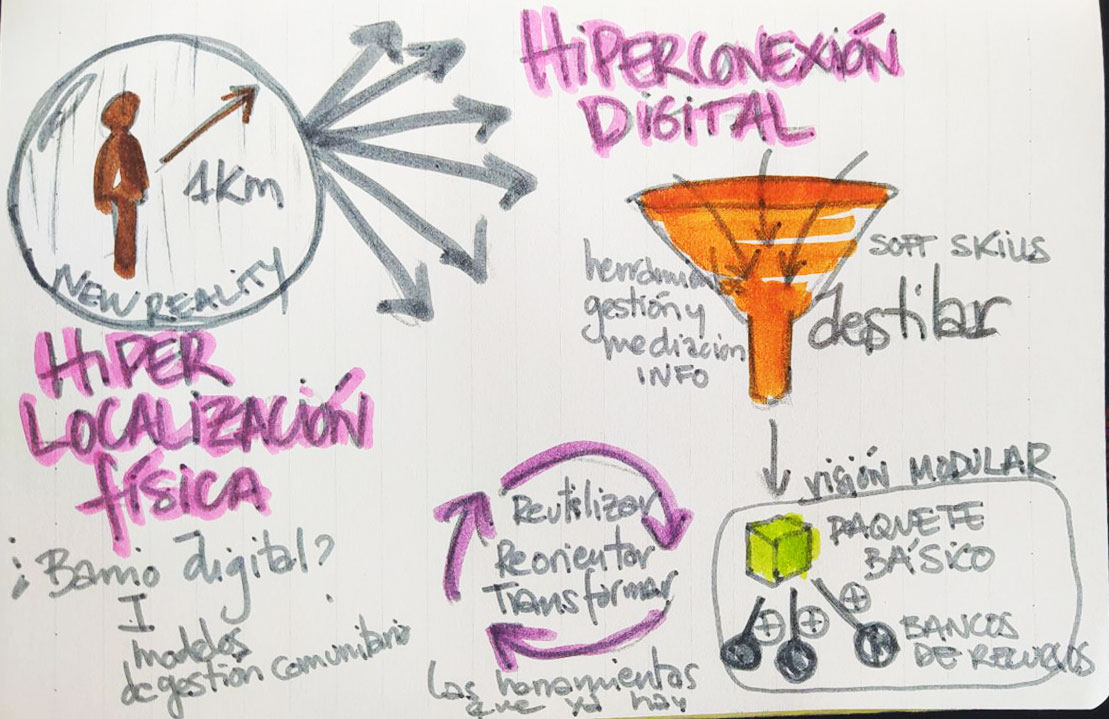 1Km
NEW REALITY
HIPER
LOCALIZACIÓN
física
¿Barrio digital?
modelos
de gestión comunitario
HIPERCONEXIÓN
DIGITAL
herramientas
gestión y
mediación
INFO
SOFT SKILLS
destilar
Reutilizar
Reorientar
Transformar
Las herramientas
que ya hay
VISIÓN MODULAR
PAQUETE
BÁSICO
BANCOS
DE RECURSOS